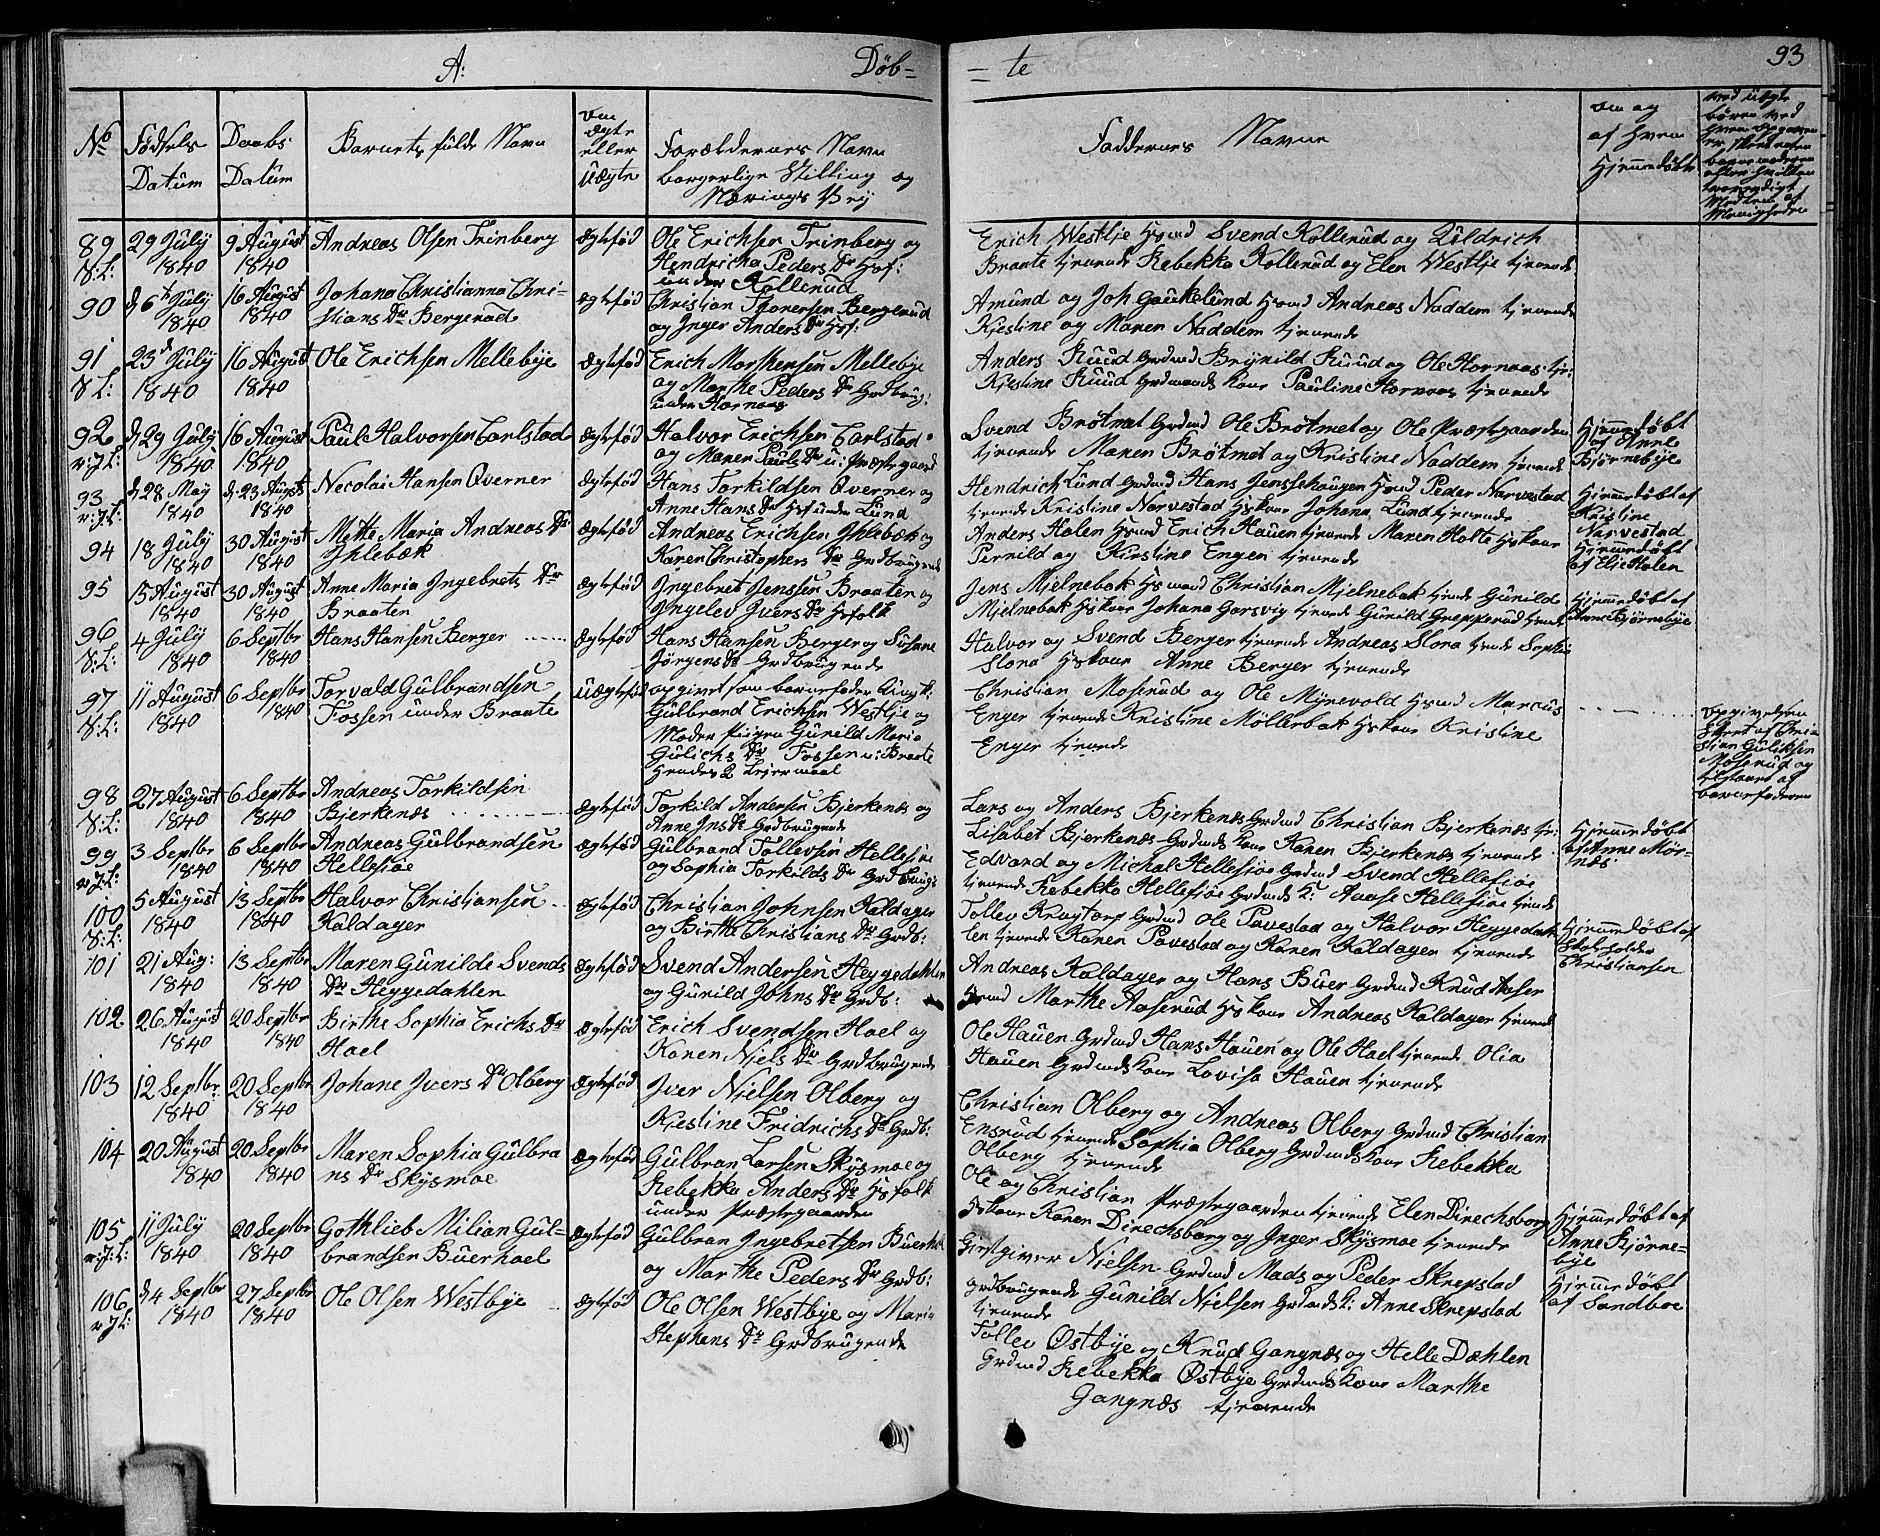 A: Döb= = te 93
No Födsels Datum Daabs Datum Barnets fulde Navn om ægte eller uægte Forældrenes Navn borgerlige Stilling og Nærings Vej
Faddernes Navne om og af hvem Hjemmedöbt
89 29 July 1840 9 August 1840 Andreas Olsen Trinberg ægtefød Ole Erichsen Trinberg og Hendricha Peders Dr Hsf: under Kollerud
Erich Westlje Hsmd Svend Kollerud og Uldrich
Braate tjenende Rebekka Kollerud og Elen Westlje tjenende
90 d 6te July 1840 16 August 1840 Johana Christianna Christians Dr Bergerud ægtefød Christian Thoresen Bergerud og Inger Anders Dr Hsf:
Amund og Joh Gaukelund Hsmd Andreas Naddem tjenende
Kjestine og Maren Naddem tjenende
91 23d July 1840 16 August 1840 Ole Erichsen Mellebye ægtefød Erich Marthensen Mellebye og Marthe Peders Dr Grdbrug: under Hornaas
Anders Ruud Grdmd Brynild Ruud og Ole Hornaas tje:
Kjestine Ruud Grdmands Kone Pauline Hornaas tjenende
92 d 29 July 1840 16 August 1840 Paul Halvorsen Carlstad ægtefød Halvor Erichsen Carlstad og Maren Pauls Dr u: Præstegaard
Svend Brötmet Grdmd Ole Brötmet og Ole Præstegaarden
tjenende Maren Brötmet og Kristine Naddem tjenende
Hjemmedöbt af Anne Bjørnebye
93 d 28 May 1840 d 23 August 1840 Necolai Hansen Qverner ægtefød Hans Torkildsen Qverner og Anne Hans Dr Hsf under Lund
Hendrich Lund Grdmd Hans Jenssehaugen Hsmd Peder Narvestad
tjenende Kristine Narvestad Hskone Johana Lund tjenende
Hjemmedöbt af Kristine Narvestad
94 18 July 1840 30 August 1840 Mette Maria Andreas Dr Ihlebæk ægtefød Andreas Erichsen Ihlebæk og Karen Christophers Dr Grdbrugende
Anders Holen Hsmd Erich Hauen tjenende Maren Holte Hskone
Pernild og Kirstine Engen tjenende
Hjemmedöbt af Elie Holen
95 15 August 1840 30 August 1840 Anne Maria Ingebrets Dr Braaten ægtefød Ingebret Jenssen Braaten og Ingelev Ivers Dr Hsfolk
Jens Mjelnebak Hsmand Christian Mjelnebak tjende Gunild
Mjelnebak Hskone Johana Gorsvig tjende Gunild Grepperud tjende
Hjemmedöbt af Anne Bjørnebye
96 4 July 1840 6 Septbr 1840 Hans Hansen Berger ægtefød Hans Hansen Berger og Susanne Jörgens Dr Grdbrugende
Halvor og Svend Berger tjenende Andreas Slora tjende Sophie
Slora Hskone Anne Berger tjenende
97 11 August 1840 6 Septbr 1840 Torvald Gulbrandsen Fossen under Braate uægtefød opgivet som barnefader Ungk: Gulbrand Erichsen Westlje og Moder Pigen Gunild Maria Gulichs Dr Fossen u: Braate hendes 2 Lejermaal
Christian Moserud og Ole Mÿrevold Hsmd Marcus
Enger tjenende Kristine Möllerbak Hskone Kristine
Enger tjenende
Opgivelsen skeet af Christian Guliksen Moserud og tilstaaet af barnefaderen
98 27 August 1840 6 Septbr 1840 Andreas Torkildsen Bjerkenæs ægtefød Torkild Andersen Bjerkenæs og Anne Jns Dr Grdbrugende
Lars og Anders Bjerkenæs Grdmd Christian Bjerkenæs tje:
Lisabet Bjerkenæs Grdmds Kone Karen Bjerkenæs tjenende
Hjemmedöbt af Anne Mörnæs
99 3 Septbr 1840 6 Septbr 1840 Andreas Gulbrandsen Hellesiöe ægtefød Gulbrand Tollevsen Hellesiöe og Sophia Torkilds Dr Grdbrug:
Edvard og Michal Hellesiöe Grdmd Svend Hellesiöe
tjenende Rebekka Hellesiöe Grdmds K: Aase Hellesiöe tjende
100 5 August 1840 13 Septbr 1840 Halvor Christiansen Kaldager ægtefød Christian Johnsen Kaldager og Birthe Christians Dr Grdb:
Tollev Krogtorp Grdmd Ole Pavestad og Halvor Heggedahlen
tjenende Karen Pavestad og Karen Kaldager tjenende
Hjemmedöbt af Skoleholder Christiansen
101 21 Aug: 1840 13 Septbr 1840 Maren Gunilde Svends Dr Heggedahlen ægtefød Svend Andersen Heggedahlen og Gunild Johns Dr Grdb:
Andreas Kaldager og Hans Buer Grdmd Knud Aaser
Hsmd Marthe Aaserud Hskone Andreas Kaldager tjenende
102 26 August 1840 20 Septbr 1840 Birthe Sophia Erichs Dr Hael ægtefød Erich Svendsen Hael og Karen Niels Dr Grdbrugende
Ole Hauen Grdmd Hans Hauen og Ole Hael tjenende Olia
Hauen Grdmds Kone Lovisa Hauen tjenende
103 12 Septbr 1840 20 Septbr 1840 Johane Ivers Dr Olberg ægtefød Iver Nielsen Olberg og Kjestine Fridrichs Dr Grdb:
Christian Olberg og Andreas Olberg Grdmd Christian
Ensrud tjenende Sophia Olberg Grdmds Kone Rebekka
Olberg tjenende
104 20 August 1840 20 Septbr 1840 Maren Sophia Gulbrans Dr Skÿsmoe ægtefød Gulbran Larsen Skÿsmoe og Rebekka Anders Dr Hsfolk under Præstegaarden
Ole og Christian Præstegaarden tjenende Elen Direchsborg
Hskone Karen Direchsborg og Inger Skÿsmoe tjenende
105 11 July 1840 20 Septbr 1840 Gothlieb Milian Gulbrandsen Buerhael ægtefød Gulbran Ingebretsen Buerhael og Marthe Peders Dr Grdb:
Giestgiver Nielsen Grdmd Mads og Peder Skrepstad
grdbrugende Gunild Nielsen Grdmds K: Anne Skrepstad
tjenende
Hjemmedöbt af Anne Bjørnebye
106 d 4 Septbr 1840 27 Septbr 1840 Ole Olsen Westbye ægtefød Ole Olsen Westbye og Maria Stephens Dr Grdbrugende
Tollev Østbÿe og Knud Gangnæs og Helle Dæhlen
Grdmd Rebekka Østbÿe Grdmds Kone Marthe
Gangnæs tjenende
Hjemmedöbt af Sandboe